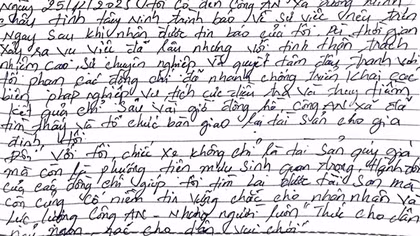 Ngày 25/12/2025 tôi có đến Công An xã Dương Minh
Châu, tỉnh tây Ninh trình báo về sự việc nêu trên
Ngay sau khi nhận được tin báo của tôi, thời gian
xảy ra vụ việc đã lâu nhưng với tinh thần trách
nhiệm cao, sự chuyên nghiệp và quyết tâm đấu tranh với
tội phạm các đồng chí đã nhanh chóng triển khai các
biện pháp nghiệp vụ tích cực điều tra và truy tìm.
Kết quả chỉ sau vài giờ đồng hồ Công AN xã đã
tìm thấy và tổ chức bàn giao lại tài sản cho gia
đình tôi.
Đối với tôi, chiếc xe không chỉ là tài sản quý giá
mà còn là phương tiện mưu sinh quan trọng. Hành động
của các đồng chí giúp tôi tìm lại được tài sản mà
còn củng cố niềm tin vững chắc cho nhân nhân và
Lực lượng Công AN - Những người luôn Thức cho dân
ngủ ngon, gác cho dân vui chơi